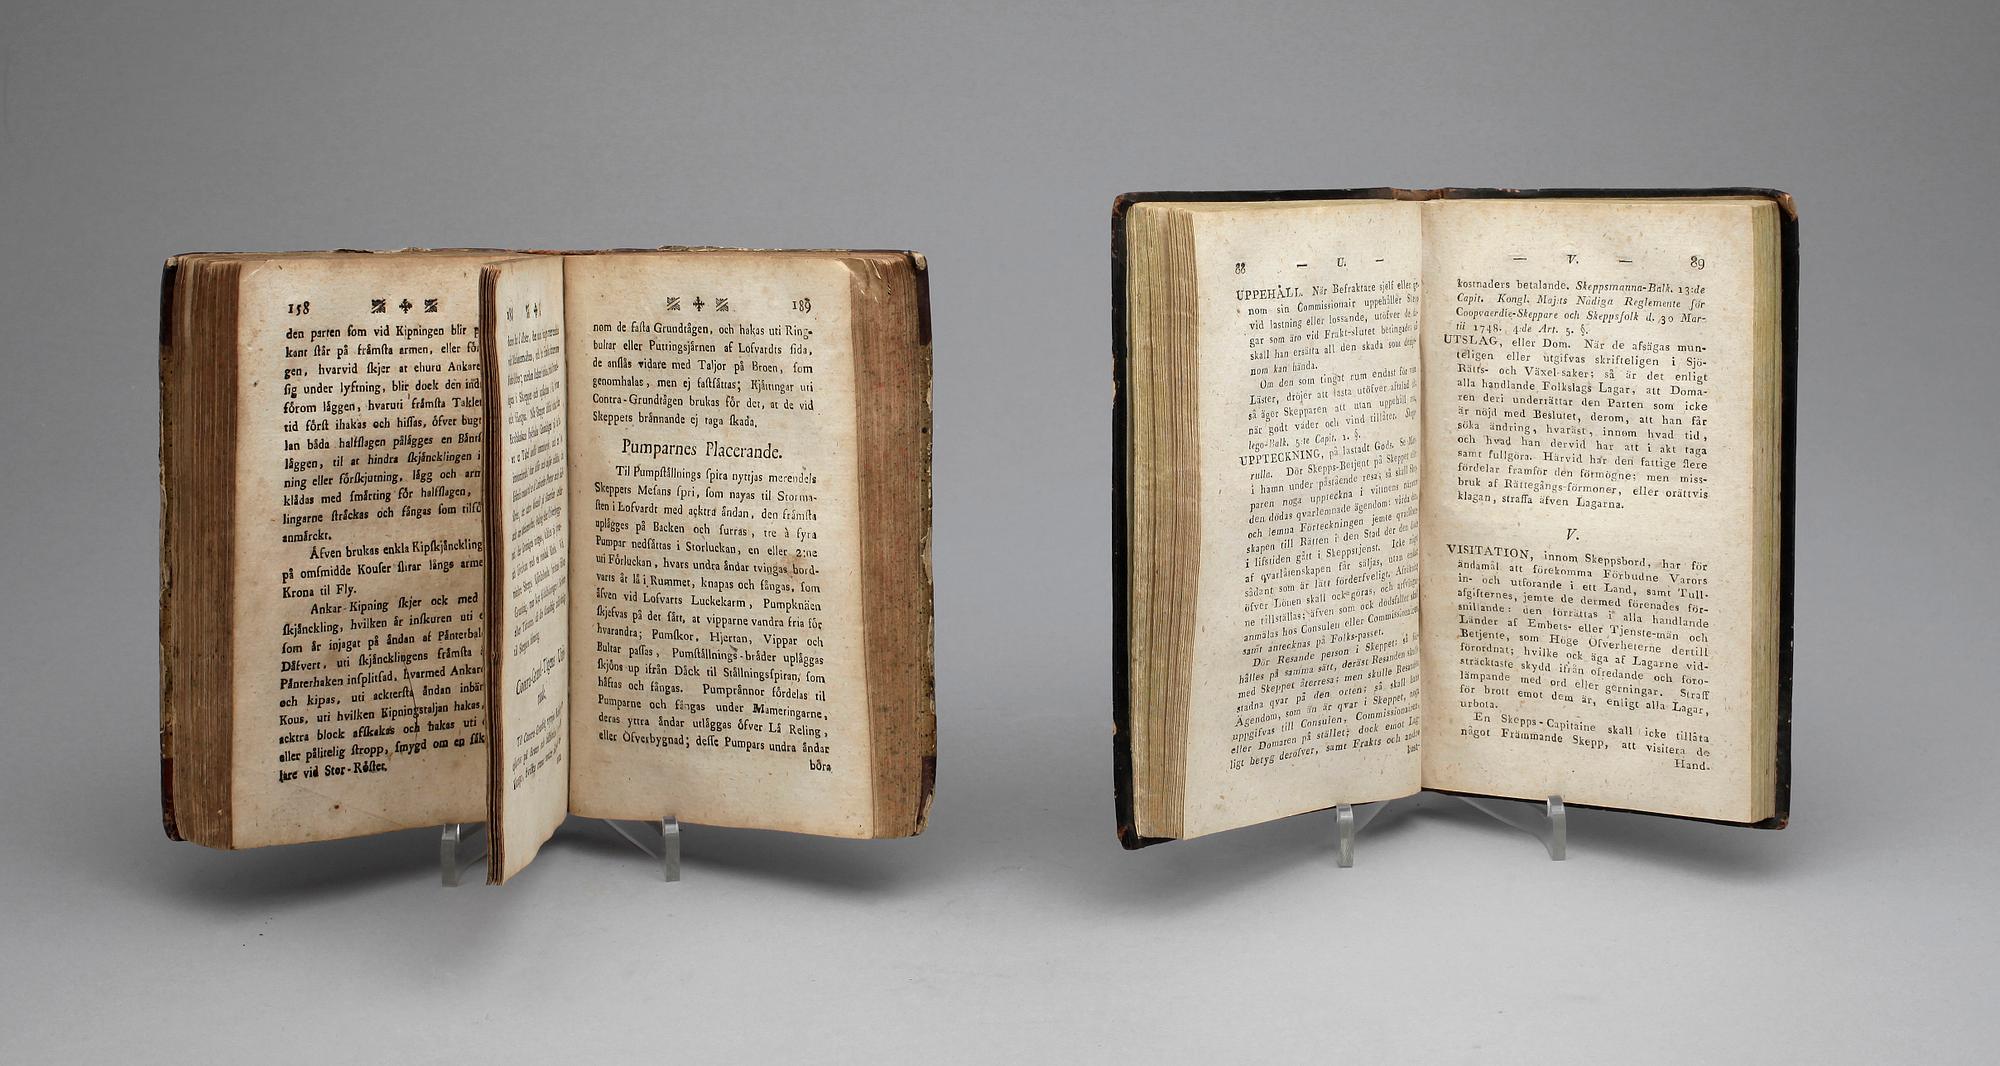 158
den parten ſom vid Kipningen blir
kant ſtår på främſta armen, eller
gen, hvarvid ſkjer at ehuru Ankare
ſig under lyftning, blir dock den
förom läggen, hvaruti främſta Taklet
tid förſt ihakas och hiſſas, öfver
lan båda halfſlagen pålägges en
läggen, til at hindra ſkjäncklingen i
ning eller förſkjutning, lägg och arm
klädas med ſmärting för halfſlagen,
lingarne ſträckas och fångas ſom
anmärckt.
Äfven brukas enkla Kipſkjänckling
på omſmidde Kouſer ſtirar långs arme
Krona til Fly.
Ankar-Kipning ſkjer ock med
ſkjänckling, hvilken är inſkuren uti
ſom är injagat på ändan af
Däfvert, uti ſkjäncklingens främſta
Pänterhaken inſplitſad, hvarmed Ankare
och kipas, uti ackterſta ändan
Kous, uti hvilken Kipningstaljan hakas,
acktra block afſkakas och hakas uti
eller pålitelig ſtropp, ſmygd om en
lare vid Stor-Röſtet.
189
nom de faſta Grundtågen, och hakas uti Ring-
bultar eller Puttingsjärnen af Lofvardts ſida,
de anſlås vidare med Taljor på Broen, ſom
genomhalas, men ej faſtſättas; Kjättingar uti
Contra-Grundtågen brukas för det, at de vid
Skeppets brännande ej taga ſkada.
Pumparnes Placerande.
Til Pumpſtällnings ſpira nyttjas merendels
Skeppets Meſans ſpri, ſom nayas til Storma-
ſten i Lofvardt med acktra ändan, den främſta
uplägges på Backen och ſurras, tre à fyra
Pumpar nedſättas i Storluckan, en eller 2:ne
uti Förluckan, hvars undra ändar tvingas bord-
varts är lä i Rummet, knapas och fångas, ſom
äfven vid Lofvarts Luckekarm, Pumpknäen
ſkjefvas på det ſätt, at vipparne vandra fria för
hvarandra; Pumſkor, Hjertan, Vippar och
Bultar paſſas, Pumſtällnings-bräder upläggas
ſkjöns up ifrån Däck til Ställningsſpiran, ſom
häftas och fångas. Pumprännor fördelas til
Pumparne och fångas under Mameringarne,
deras yttra ändar utläggas öfver Lä Reling,
eller Öfverbygnad; deſſe Pumpars undra ändar
böra
88 — U. —
UPPEHÅLL. När Befraktare sjelf eller
nom sin Commissionair uppehåller
vid lastning eller lossande, utöfver de
gar som äro vid Frakt-slutet betingade
skall han ersätta all den skada som
nom kan hända.
Om den som tingat rum endast för
Läster, dröjer att lasta utöfver aftalad
så äger Skepparen att utan uppehåll
när godt väder och vind tillåter.
lego-Balk. 5:te Capit. 1. §.
UPPTECKNING, på lastadt Gods. Se
rulla. Dör Skepps-Betjent på Skeppet
i hamn under påstående resa; så skall
paren noga uppteckna i vittnens närvaro
den dödas qvarlemnade ägendom: vårda
och lemna Förteckningen jemte
skapen till Rätten i den Stad der den
i lifstiden gått i Skeppstjenst. Icke
af qvarlåtenskapen får säljas, utan
sådant som är lätt förderfveligt.
öfver Lönen skall ock göras; och
ne tillställas; äfven som ock dödsfallet
anmälas hos Consulen eller Commissionairen,
samt antecknas på Folks-passet.
Dör Resande person i Skeppet: så
hålles på samma sätt, derest Resanden
med Skeppet återresa; men skulle Resanden
stadna qvar på den orten; så skall
Ägendom, som än är qvar i Skeppet, noga
uppgifvas till Consulen, Commissionairen,
eller Domaren på stället; dock emot
ligt betyg deröfver, samt Frakts och andra
kost-
— V. — 89
kostnaders betalande. Skeppsmanna-Balk. 13:de
Capit. Kongl. Maj:ts Nådiga Reglemente för
Coopvaerdie-Skeppare och Skeppsfolk d. 30 Mar-
tii 1748. 4:de Art. 5. §.
UTSLAG, eller Dom. När de afsägas mun-
teligen eller utgifvas skrifteligen i Sjö-
Rätts- och Växel-saker; så är det enligt
alla handlande Folkslags Lagar, att Doma-
ren deri underrättar den Parten som icke
är nöjd med Beslutet, derom, att han får
söka ändring, hvaräst, innom hvad tid,
och hvad han dervid har att i akt taga
samt fullgöra. Härvid har den fattige flere
fördelar framför den förmögne; men miss-
bruk af Rättegångs-förmoner, eller orättvis
klagan, straffa äfven Lagarna.
V.
VISITATION, innom Skeppsbord, har för
ändamål att förekomma Förbudne Varors
in- och utförande i ett Land, samt Tull-
afgifternes, jemte de dermed förenades för-
snillande: den förrättas i alla handlande
Länder af Embets- eller Tjenste-män och
Betjente, som Höge Öfverheterne dertill
förordnat; hvilke ock äga af Lagarne vid-
sträcktaste skydd ifrån ofredande och föro-
lämpande med ord eller gerningar. Straff
för brott emot dem är, enligt alla Lagar,
urbota.
En Skepps-Capitaine skall icke tillåta
något Främmande Skepp, att visitera de
Hand.